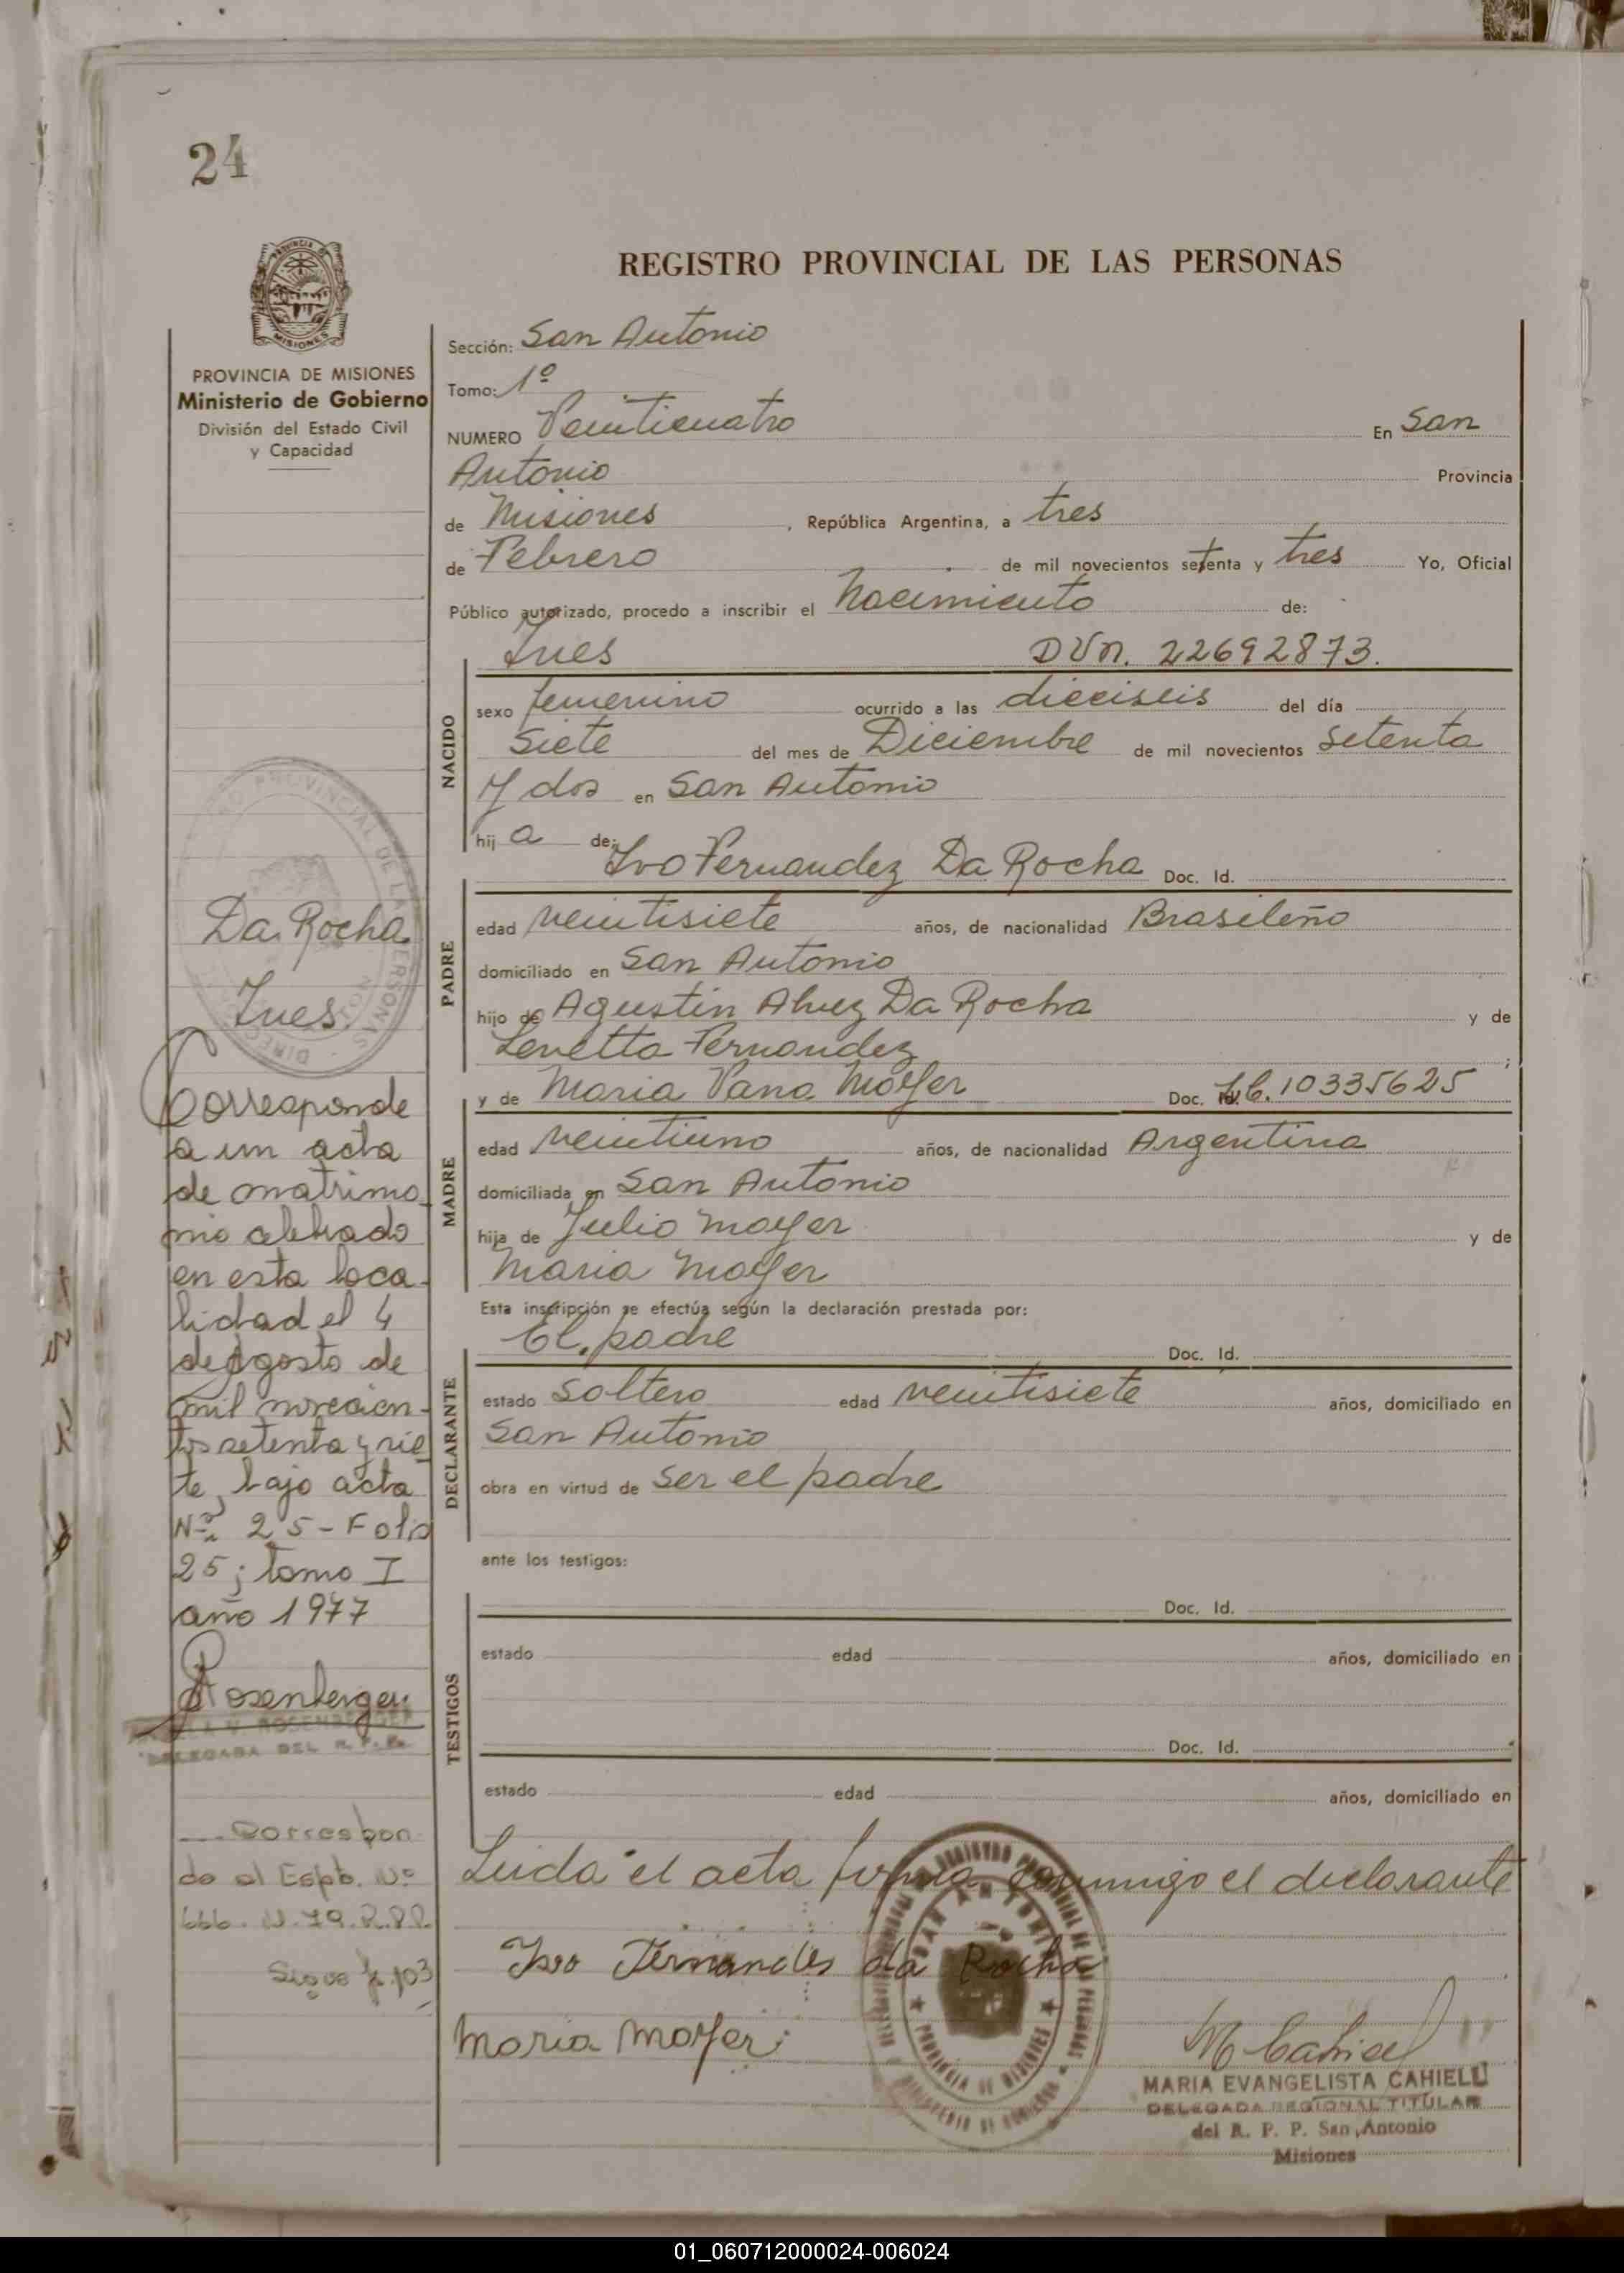 24
REGISTRO PROVINCIAL DE LAS PERSONAS
MISIONES
PROVINCIA DE MISIONES
Ministerio de Gobierno
División del Estado Civil
y Capacidad
Sección: San Antonio
Tomo: 1º
NUMERO Veinticuatro En San
Antonio Provincia
de Misiones, República Argentina, a tres
de Febrero de mil novecientos setenta y tres Yo, Oficial
Público autorizado, procedo a inscribir el Nacimiento de:
Ines DUN. 22692873.
NACIDO
sexo femenino ocurrido a las dieciseis del día
siete del mes de Diciembre de mil novecientos setenta
y dos en San Antonio
hij a de:
Ivo Fernandez Da Rocha Doc. Id.
PADRE
edad veintisiete años, de nacionalidad Brasileño
domiciliado en San Antonio
hijo de Agustin Alvez Da Rocha y de
Fernandez ;
y de Maria Mayer Doc. 10335625
MADRE
edad veintiuno años, de nacionalidad Argentina
domiciliada en San Antonio
hija de Julio Mayer y de
Maria Mayer
Esta inscripción se efectúa según la declaración prestada por:
El padre Doc. Id.
DECLARANTE
estado soltero edad veintisiete años, domiciliado en
San Antonio
obra en virtud de ser el padre
ante los testigos:
Doc. Id.
TESTIGOS
estado edad años, domiciliado en
Doc. Id.
estado edad años, domiciliado en
Leida el acta firma conmigo el declarante
Ivo Fernandes da Rocha
Maria Mayer
M Cahiel
MARIA EVANGELISTA CAHIELL
DELEGADA REGIONAL TITULAR
del R. P. P. San Antonio
Misiones
Da Rocha
Ines.
Corresponde
a un acta
de matrimo
nio celebrado
en esta loca-
lidad el 4
de agosto de
mil novecien-
tos setenta y sie
te, bajo acta
Nº 25-Folio
25; tomo I
año 1977
Rosenberger
ROSENBERGER
DELEGADA DEL R. P. P.
Correspon
de al Expte. Nº
666. N. 79. R.P.P.
Sigue f. 103
01_060712000024-006024